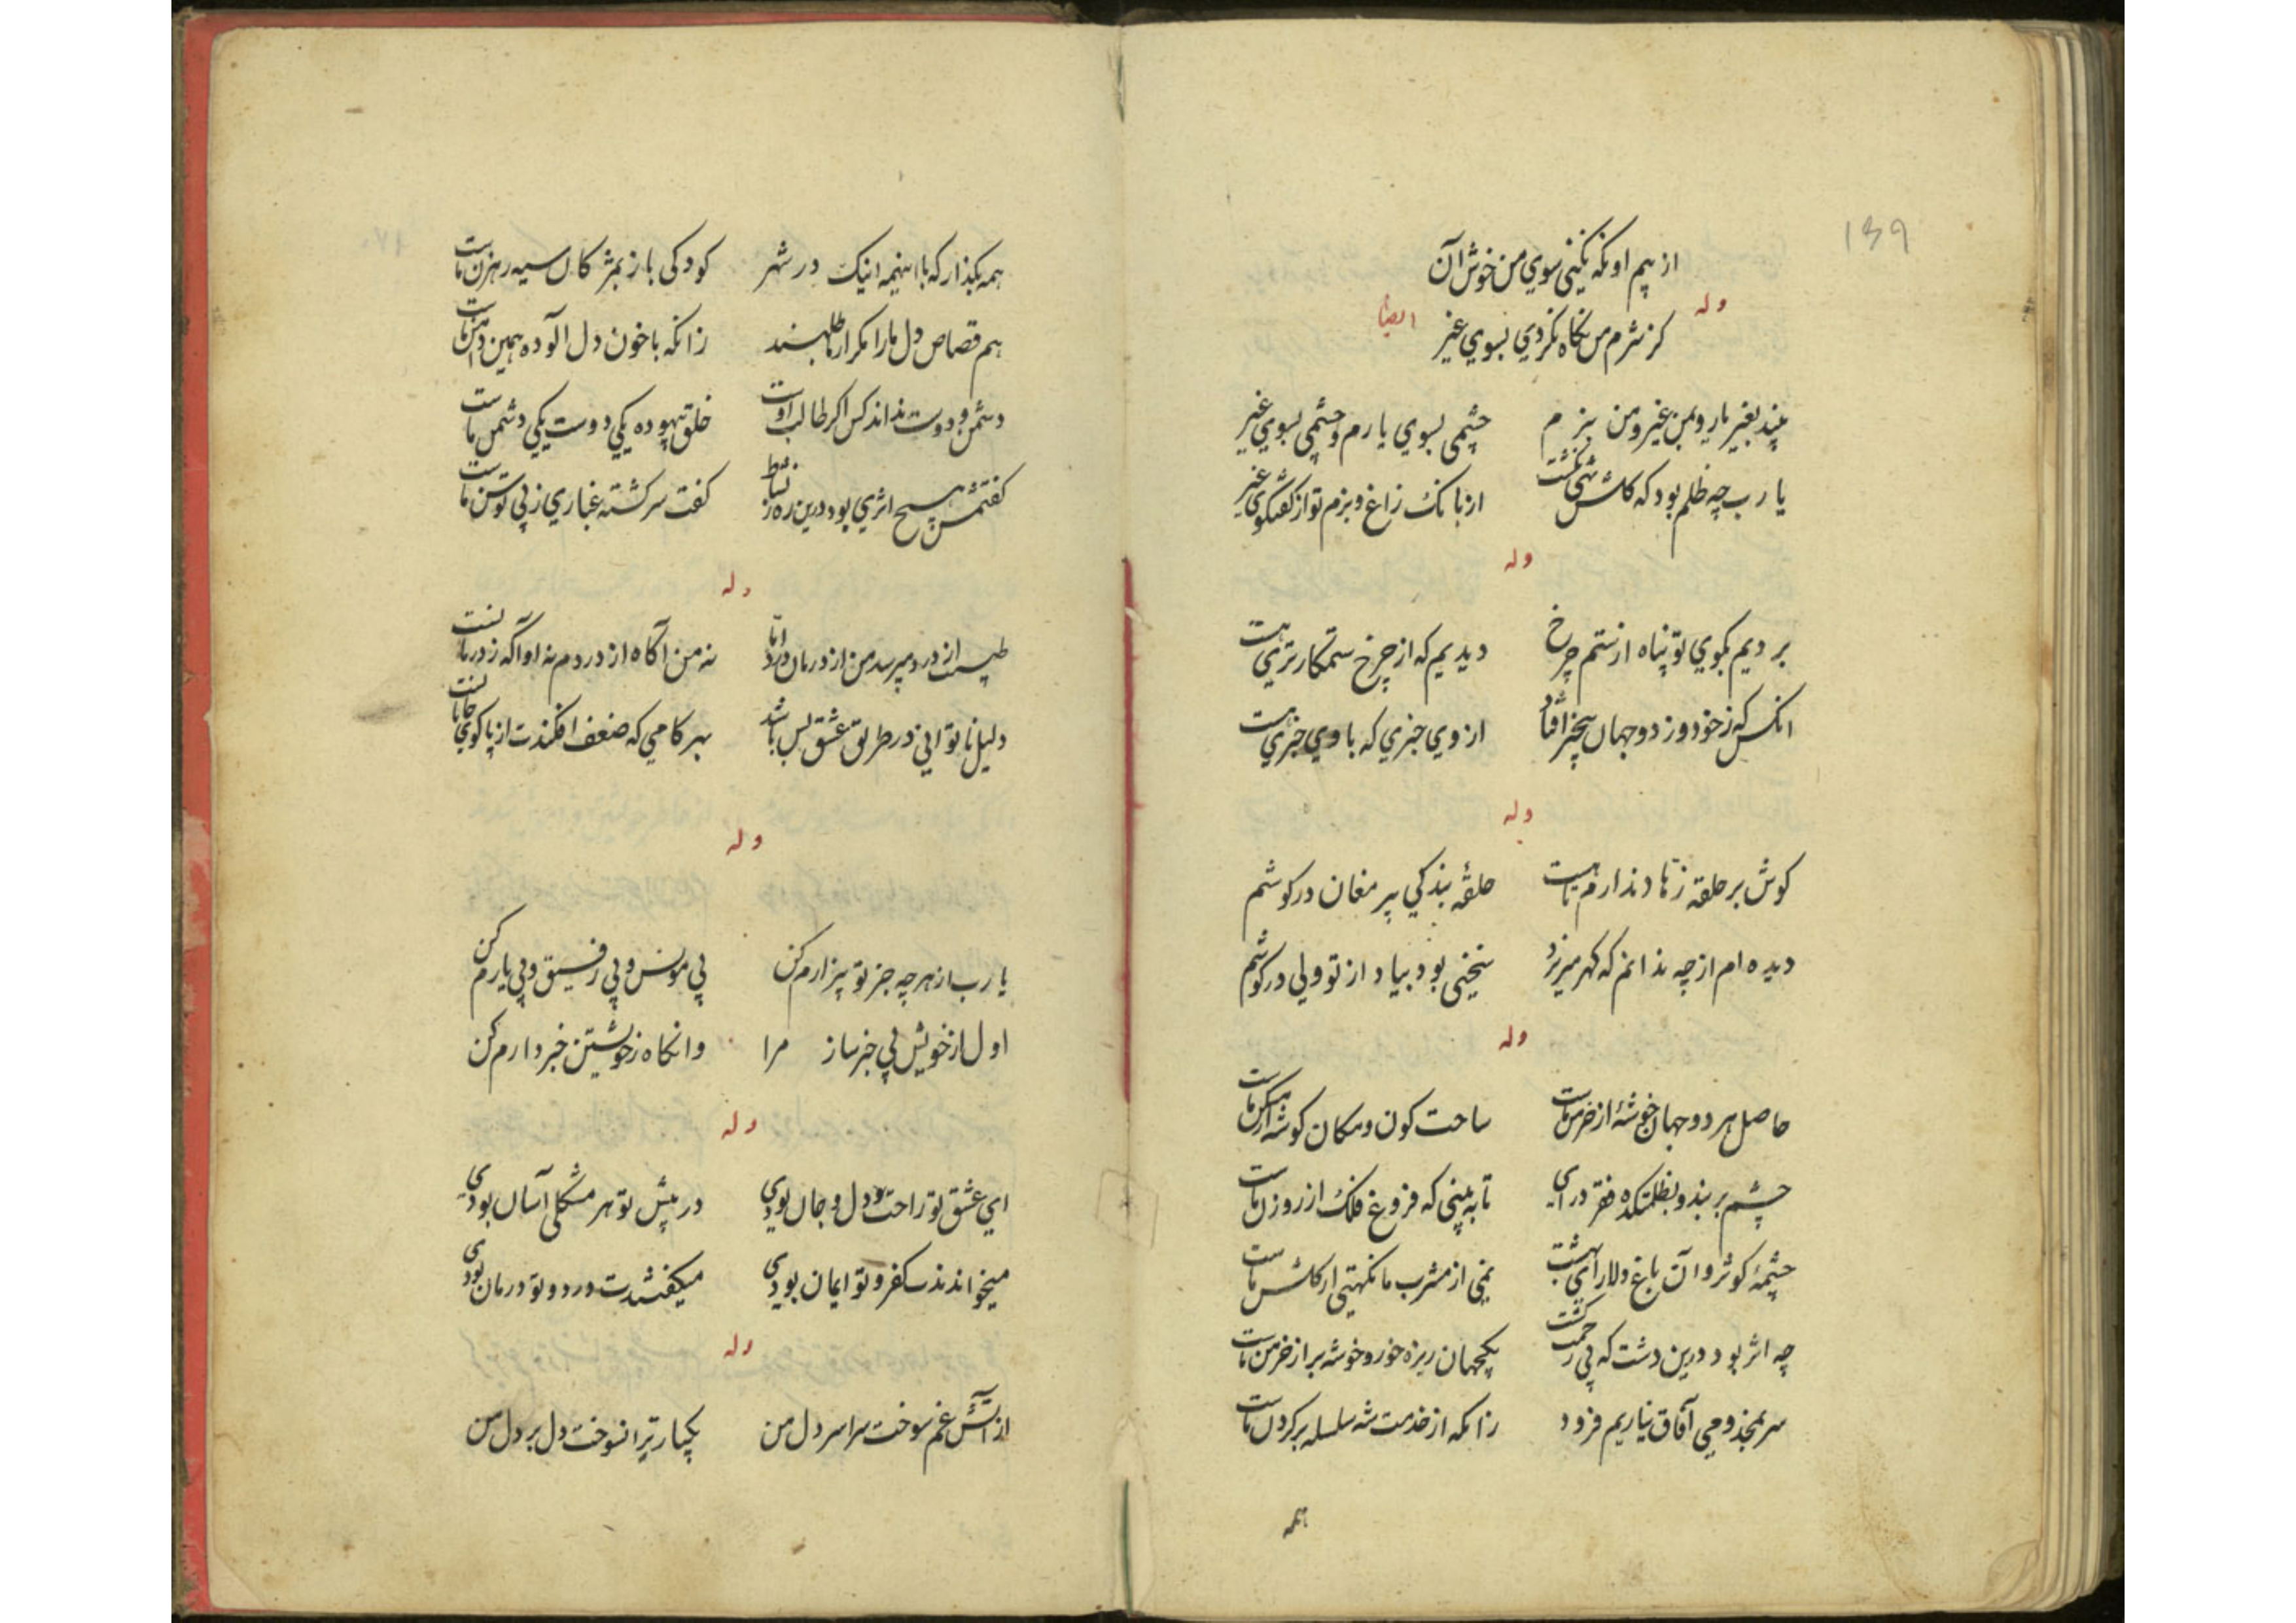 ۱۳۹
از بیم اونکه نکنی سوی من خوش آن
وله ایضا
کز شرم من نگاه نکردی بسوی غیر
بیند بغیر یار و بمن غیر و من ببزم
چشمی بسوی یارم و چشمی بسوی غیر
یا رب چه ظلم بود که گلشن تهی نگشت
از بانگ زاغ و بزم تو از گفتگوی غیر
وله
بردیم بکوی تو پناه از ستم چرخ
دیدیم که از چرخ ستمکارتری هست
انکس که ز خود وز دو جهان بیخبر افتاد
از وی خبری که با وی خبری هست
وله
کوش بر حلقه زهاد ندارم تا هست
حلقهٔ بندکی پیر مغان در کوشم
دیده ام از چه ندانم که کهر میریزد
سخنی بود بیاد از تو ولی در کوشم
وله
حاصل هر دو جهان خوشهٔ از خرمن ماست
ساحت کون و مکان کوشه از مسکن ماست
چشم بربند و بظلمتکده فقر درای
تا به بینی که فروغ فلک از روزن ماست
چشمهٔ کوثر و آن باغ دلارای بهشت
نمی از مشرب ما نکهتی از کلشن ماست
چه اثر بود درین دشت که بی زحمت کشت
یکجهان ریزه خور و خوشه بر از خرمن ماست
سر بمخدومی آفاق نیاریم فرود
زانکه از خدمت شه سلسله بر کردن ماست
همه
همه بکذار که با اینهمه اینک در شهر
کودکی باز بمژکان سیه رهزن ماست
هم قصاص دل ما را مکر از ما طلبند
زانکه با خون دل الوده همین دامن ماست
دشمن و دوست نداند کس اکر طالب اوست
خلق بیهوده یکی دوست یکی دشمن ماست
کفتمش هیچ اثری بود درین ره ز نشاط
کفت سرکشته غباری ز پی توسن ماست
وله
طبیب از درد میپرسد من از درمان درد اما
نه من آکاه از دردم نه او آکه ز درمانست
دلیل ناتوانی در طریق عشق بس باشد
بهر کامی که ضعف افکندت از پا کوی جانانست
وله
یا رب از هر چه جز تو بیزارم کن
بی مونس و بی رفیق و بی یارم کن
اول از خویش بی خبر ساز مرا
وانکاه ز خویشتن خبردارم کن
وله
ای عشق تو راحت دل و جان بودی
در پیش تو هر مشکلی آسان بودی
میخواندندت کفر و تو ایمان بودی
میکفتندت درد و تو درمان بودی
وله
از آتش غم سوخت سراسر دل من
یکبار ترا نسوخت دل بر دل من